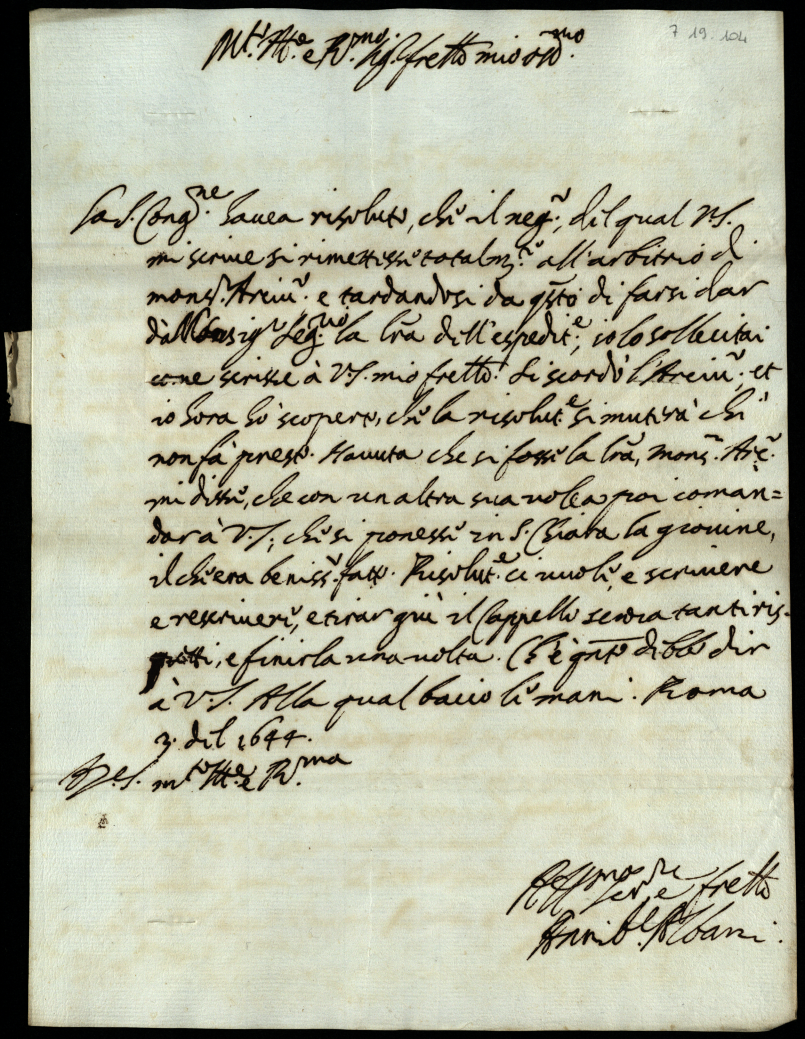 7 19. 104
Mt.° Ill.e e R.mo Sig.r fretto mio oss.mo
La S. Cong.ne havea risoluto, che il neg.°, del qual V.S.
mi scrive si rimettesse totalm.te all'arbitrio di
mons.r Arciv.° e tardandosi da q̃sto di farsi dar
dà Monsig.r Seg.rio la lr̃a dell'espedit.e, io lo sollecitai
e ne scrisse à V.S. mio fretto. Si scordò l'Arciv.°, et
io hora hò scoperto, che la risolut.e si muterà che
non fà presto. Havuta che si fosse la lr̃a, mons.r Arc.°
mi disse, che con un altra sua volea poi coman=
dar à V.S., che si ponesse in S. Chiara la giovine,
il che era beniss.° fatto. Risolut.e ci vuole, e scrivere
e rescrivere, e tirar giù il Cappello senza tanti ris-
petti, e finirla una volta. Ch'è q̃nto debbo dir
à V.S. Alla qual bacio le mani. Roma
3. del 1644.
Di V.S. m.to Ill.e e R.ma
Aff.mo Ser.re e fretto
Annib.e Albani.